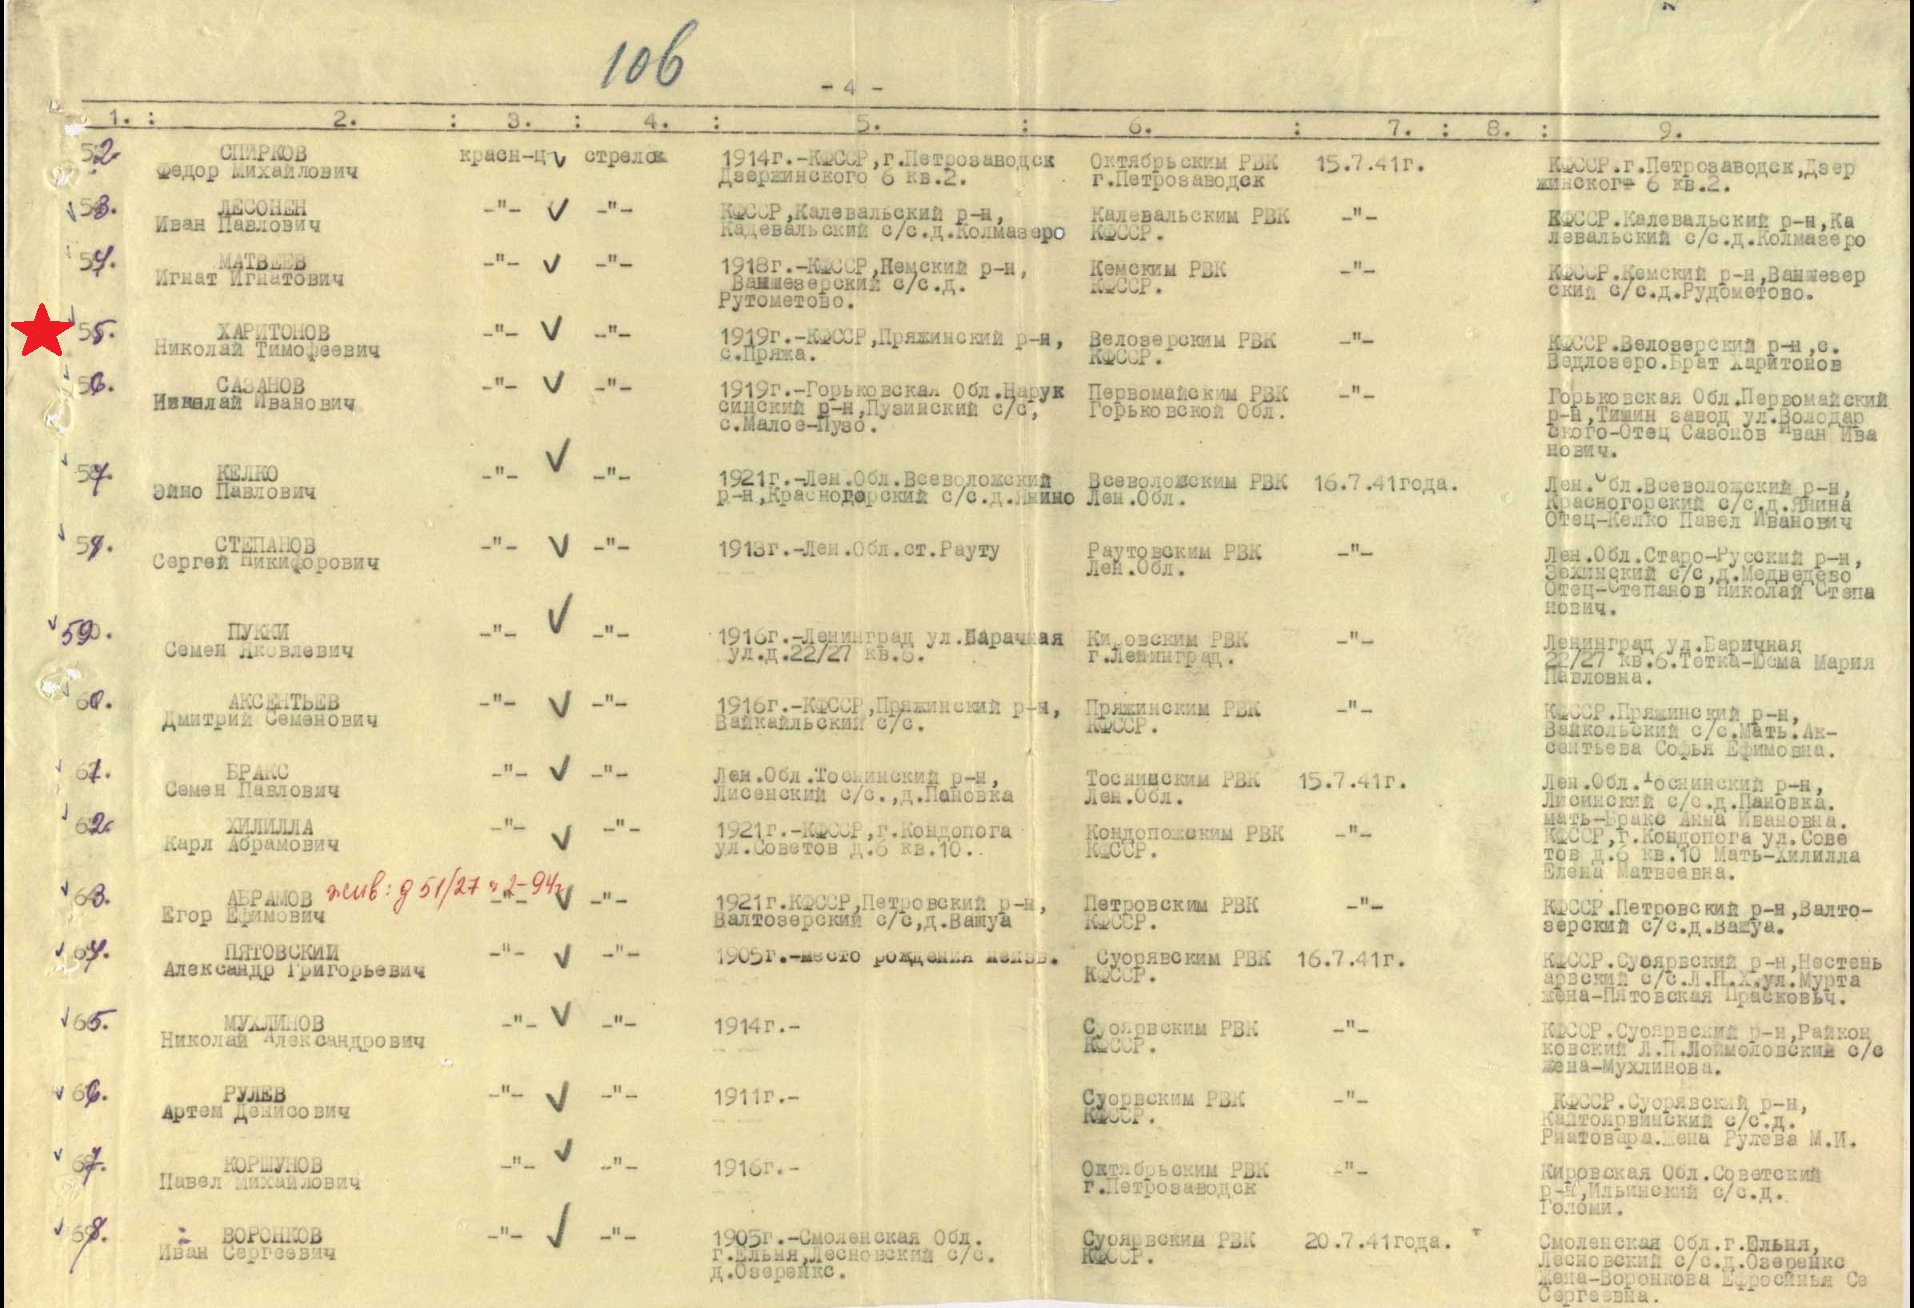 106
- 4 -
1. : 2. : 3. : 4. : 5. : 6. : 7. : 8. : 9.
52 СПИРКОВ красн-ц стрелок 1914г.-КФССР,г.Петрозаводск Октябрьским РВК 15.7.41г. КФССР.г.Петрозаводск,Дзер
Федор Михайлович Дзержинского 6 кв.2. г.Петрозаводск жинского 6 кв.2.
53. ЛЕСОНЕН -"- -"- КФССР,Калевальский р-н, Калевальским РВК -"- КФССР.Калевальский р-н,Ка
Иван Павлович Кадевальский с/с.д.Колмазеро КФССР. левальский с/с.д.Колмазеро
54. МАТВЕЕВ -"- -"- 1918г.-КФССР,Кемский р-н, Кемским РВК -"- КФССР.Кемский р-н,Ваншезер
Игнат Игнатович Ваншезерский с/с.д. КФССР. ский с/с.д.Рудометово.
Рутометово.
55. ХАРИТОНОВ -"- -"- 1919г.-КФССР,Пряжинский р-н, Велозерским РВК -"- КФССР.Велозерский р-н,с.
Николай Тимофеевич с.Пряжа. КФССР. Ведлозеро.Брат Харитонов
56. САЗАНОВ -"- -"- 1919г.-Горьковская Обл.Нарук Первомайским РВК -"- Горьковская Обл.Первомайский
Николай Иванович синский р-н,Пузинский с/с, Горьковской Обл. р-н,Тишин завод ул.Володар
с.Малое-Пузо. ского-Отец Сазонов Иван Ива
нович.
57. КЕЛКО -"- -"- 1921г.-Лен.Обл.Всеволожский Всеволожским РВК 16.7.41года. Лен.Обл.Всеволожский р-н,
Эйно Павлович р-н,Красногорский с/с.д.Янино Лен.Обл. Красногорский с/с.д.Янина
Отец-Келко Павел Иванович
59. СТЕПАНОВ -"- -"- 1913г.-Лен.Обл.ст.Рауту Раутовским РВК -"- Лен.Обл.Старо-Русский р-н,
Сергей Никифорович Лен.Обл. с/с,д.Медведево
Отец-Степанов Николай Степа
нович.
59. ПУККИ -"- -"- 1916г.-Ленинград ул.Барачная Кировским РВК -"- Ленинград ул.Баричная
Семен Яковлевич ул.д.22/27 кв.6. г.Ленинград. 22/27 кв.6.Тетка-Юсма Мария
Павловна.
60. АКСЕНТЬЕВ -"- -"- 1916г.-КФССР,Пряжинский р-н, Пряжинским РВК -"- КФССР.Пряжинский р-н,
Дмитрий Семенович Вайкайльский с/с. КФССР. Вайкольский с/с.Мать.Ак-
сентьева Софья Ефимовна.
61. БРАКС -"- -"- Лен.Обл.Тоснинский р-н, Тоснинским РВК 15.7.41г. Лен.Обл.Тоснинский р-н,
Семен Павлович Лисенский с/с.,д.Пановка Лен.Обл. Лисинский с/с.д.Пановка.
мать-Бракс Анна Ивановна.
62. ХИЛИЛЛА -"- -"- 1921г.-КФССР,г.Кондопога Кондопожским РВК -"- КФССР,г.Кондопога ул.Сове
Карл Абрамович ул.Советов д.6 кв.10.. КФССР. тов д.6 кв.10 Мать-Хилилла
Елена Матвеевна.
63. АБРАМОВ жив: д 51/27 2-94г -"- -"- 1921г.КФССР,Петровский р-н, Петровским РВК -"- КФССР.Петровский р-н,Валто-
Егор Ефимович Валтозерский с/с,д.Вашуа КФССР. зерский с/с.д.Вашуа.
64. ПЯТОВСКИЙ -"- -"- 1905г.-место рождения неизв. Суорявским РВК 16.7.41г. КФССР.Суоярвский р-н,Нестень
Александр Григорьевич КФССР. арвский с/с.Л.П.Х.ул.Мурта
жена-Пятовская Прасковьч.
65. МУХЛИНОВ -"- -"- 1914г.- Суоярвским РВК -"- КФССР.Суоярвский р-н,Райкон
Николай Александрович КФССР. ковский Л.П.Лоймоловский с/с
жена-Мухлинова.
66. РУЛЕВ -"- -"- 1911г.- Суорвским РВК -"- КФССР.Суорявский р-н,
Артем Денисович КФССР. Кайтоярвинский с/с.д.
Риатовара.Жена Рулева М.И.
67. КОРШУНОВ -"- -"- 1916г.- Октябрьским РВК -"- Кировская Обл.Советский
Павел Михайлович г.Петрозаводск р-н,Ильинский с/с.д.
Голоми.
68. ВОРОНКОВ -"- -"- 1905г.-Смоленская Обл. Суоярвским РВК 20.7.41года. Смоленская Обл.г.Ельня,
Иван Сергеевич г.Ельня,Лесновский с/с. КФССР. Лесновский с/с.д.Озеренкс
д.Озеренкс. жена-Воронкова Ефросинья Се
Сергеевна.